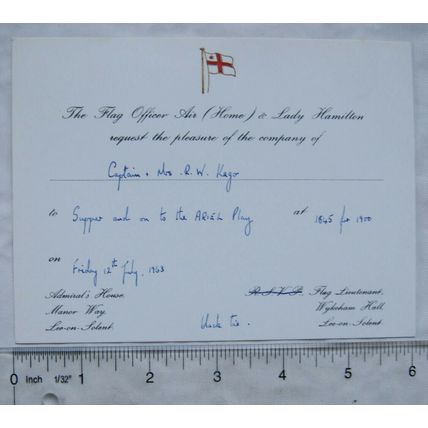 The Flag Officer Air (Home) & Lady Hamilton
request the pleasure of the company of
Captain & Mrs. R. W. Kegr
to Supper and on to the ARIEL Play at 1845 for 1900
on Friday 12th July, 1963
Admiral's House, R.S.V.P. Flag Lieutenant,
Manor Way, Wykeham Hall,
Lee-on-Solent. Black tie. Lee-on-Solent.
0 Inch 1/32" 1 2 3 4 5 6